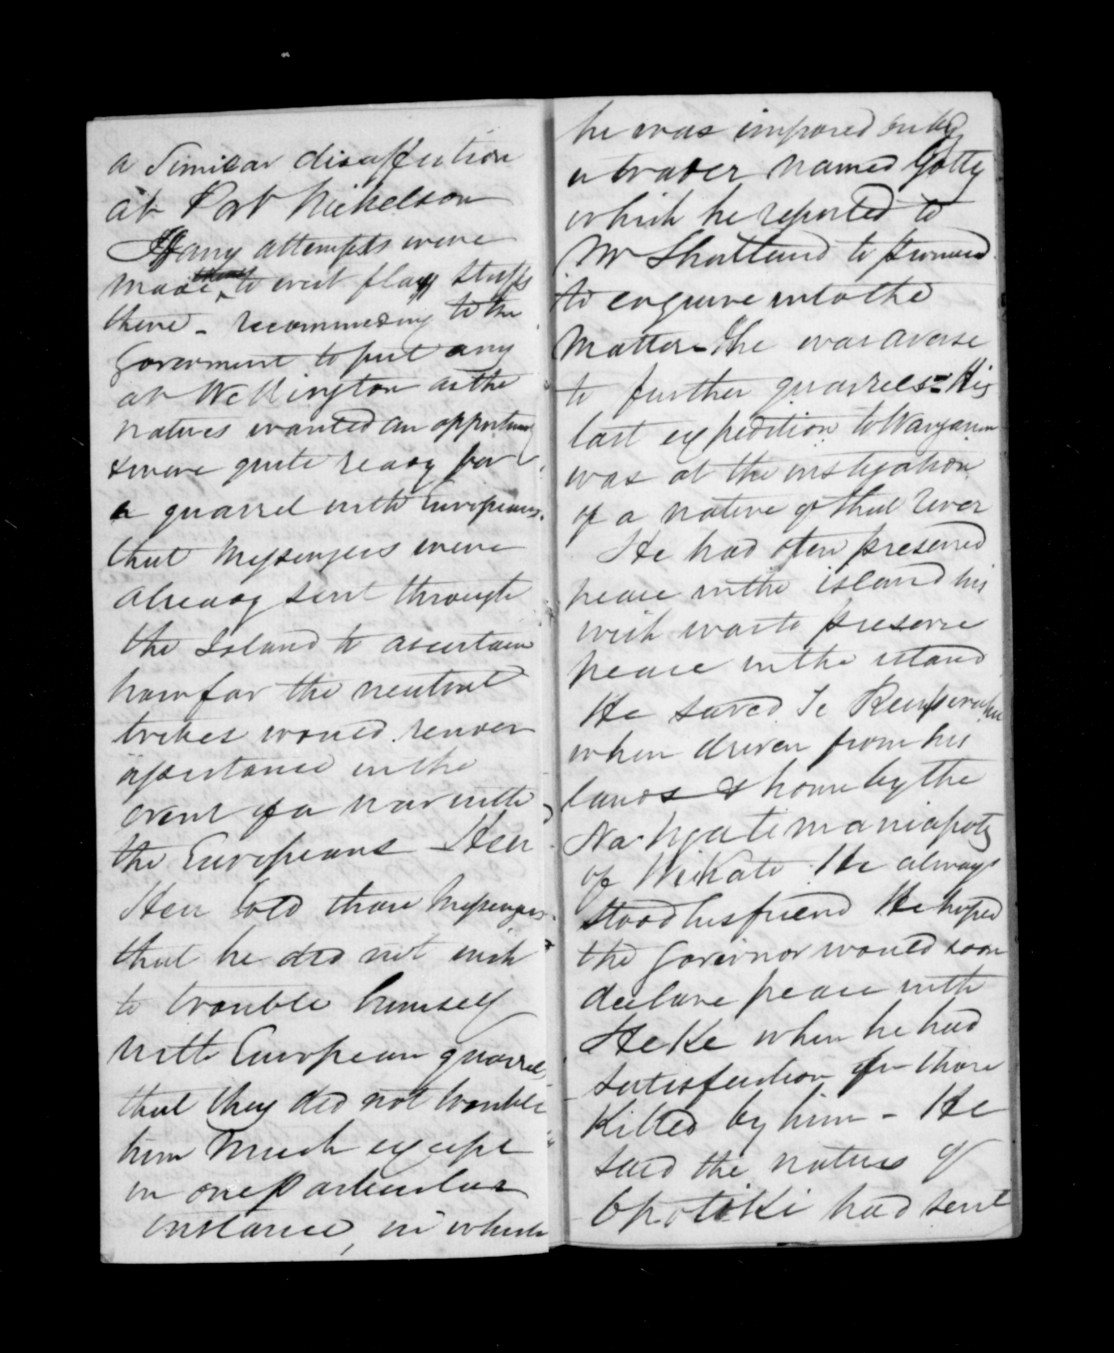 a Similar disaffection
at Port Nickelson
If any attempts were
made to erect flag staffs
there - recommending to the
Goverment to put any
at Wellington as the
natives wanted an opportunity
& were quite ready for
a quarrel with Europeans.
that Messengers were
already sent through
the Island to ascertain
how far the neutral
tribes would render
assistance in the
event of a war with
the Europeans Heu
Heu told those Messengers
that he did not wish
to trouble himself
with European quarrel,
that they did not trouble
him Much except
in one Particular
instance, in which
he was imposed on by
a trader named Gotty
which he reported to
Mr Shortland to
to enquire into the
Matter - He was averse
to further quarrels = His
last expedition to Wanganui
was at the instigation
of a native of that River
He had often preserved
peace in the island his
wish was to preserve
peace in the island
He saved Te Rauparaha
when driven from his
lands & home by the
Na Ngatimaniapoto
of Wikato He always
stood his friend He hoped
the Governor would soon
declare peace with
HeKe when he had
satisfaction for those
Killed by him - He
said the natives of
OpotiKi had sent